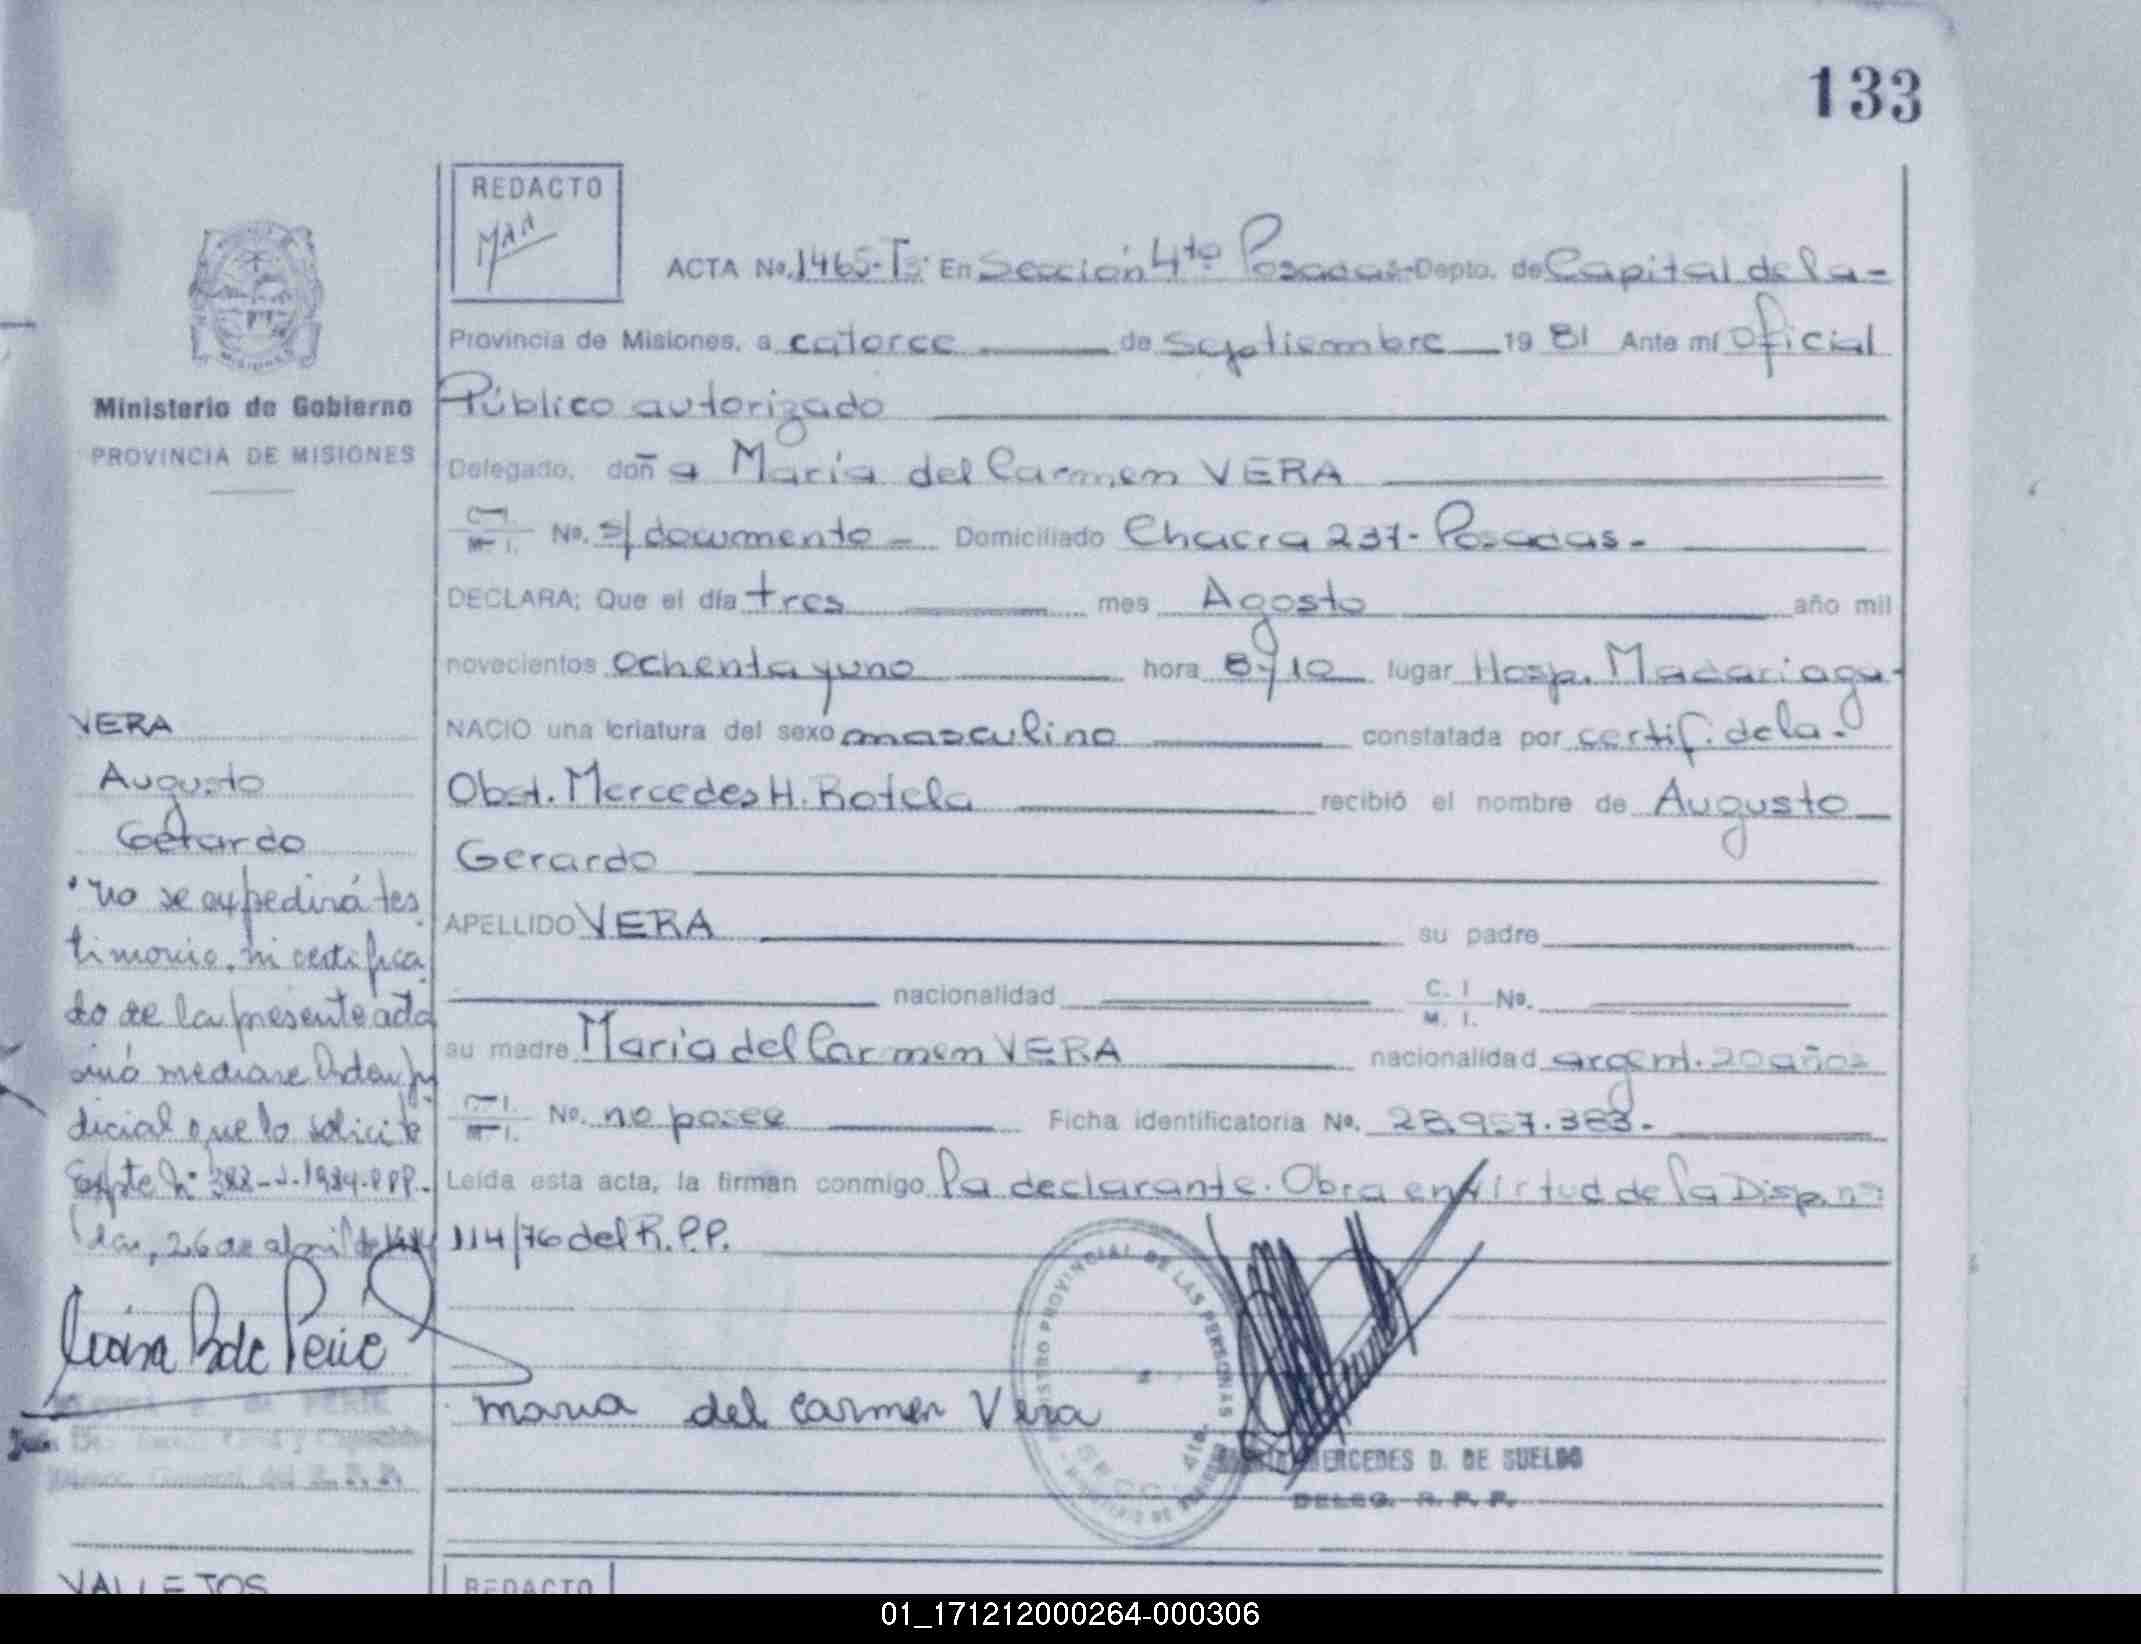 133
REDACTO
ACTA No. 1465-T3: En Sección 4ta Posadas- Depto. de Capital de la-
Provincia de Misiones, a catorce de septiembre 1981 Ante mí Oficial
Público autorizado
Delegado, doña María del Carmen VERA
C. I. M. I. No. s/documento - Domiciliado Chacra 237- Posadas.-
DECLARA; Que el día tres mes Agosto año mil
novecientos ochenta y uno hora 8y10 lugar Hosp. Madariaga-
NACIO una criatura del sexo masculino constatada por certif. de la.
Obst. Mercedes H. Rotela recibió el nombre de Augusto
Gerardo
APELLIDO VERA su padre
nacionalidad C. I. M. I. No.
su madre María del Carmen VERA nacionalidad argent. 20 años
C. I. M. I. No. no posee Ficha identificatoria No. 28.957.383.-
Leída esta acta, la firman conmigo la declarante. Obra en virtud de la Disp. nº
114/76 del R.P.P.
maria del carmen Vera
REGISTRO PROVINCIAL DE LAS PERSONAS
SECC. 4ta.
MERCEDES D. DE SUELDO
DELEG. R. P. P.
MISIONES
Ministerio de Gobierno
PROVINCIA DE MISIONES
VERA
Augusto
Gerardo
"No se expedirá tes
timonio, ni certifica
do de la presente acta
sinó mediare Orden ju
dicial que lo solicite
Expte Nº 382-J-1984-RPP.-
26 de abril de 1984
VALLEJOS
REDACTO
01_171212000264-000306